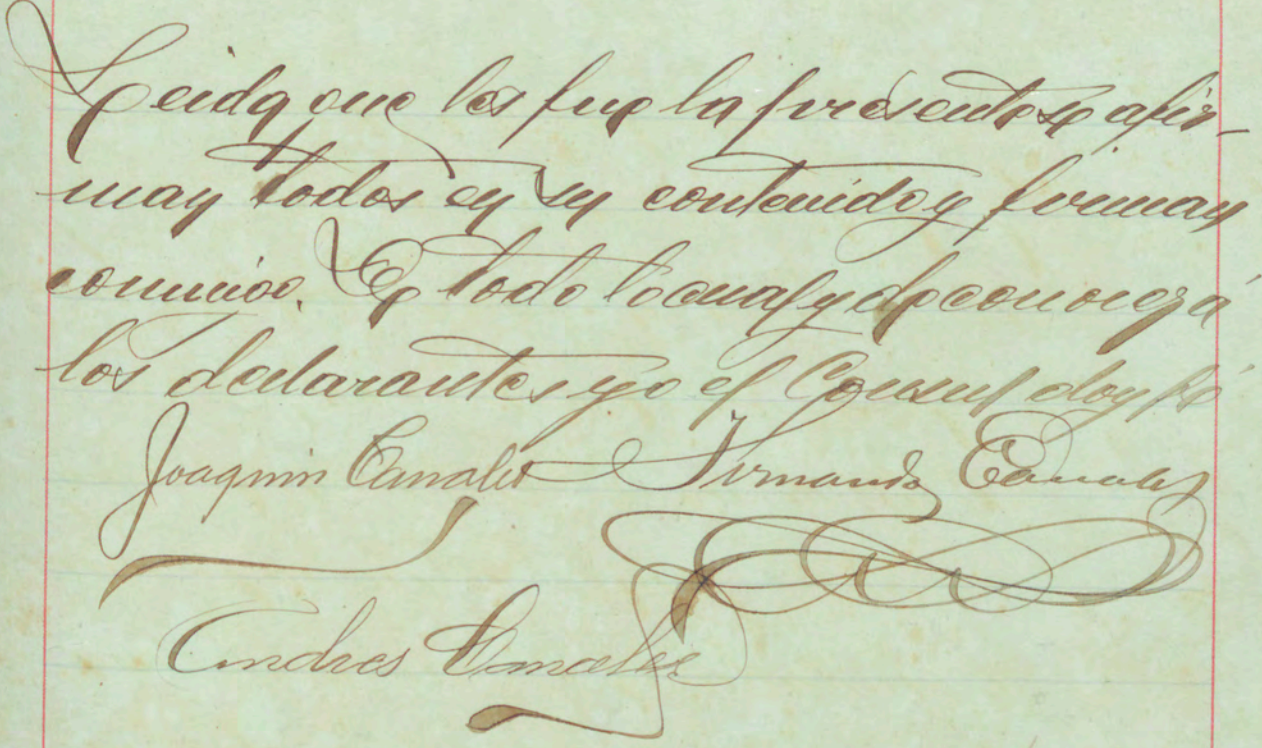 Leida que les fue la presente se afir-
man todos en su contenido y firman
conmigo. De todo lo cual y de conocer á
los declarantes yo el Consul doy fé
Joaquin Canales Fernando Canales
Andres Canales